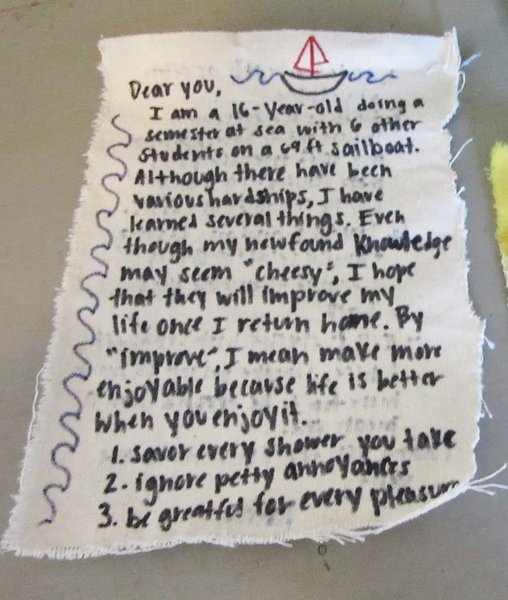 Dear you,
I am a 16-Year-old doing a
semester at sea with 6 other
students on a 69ft sailboat.
Although there have been
various hardships, I have
learned several things. Even
though my newfound Knowledge
may seem "cheesy", I hope
that they will improve my
life once I return home. By
"improve", I mean make more
enjoyable because life is better
when you enjoy it.
1. savor every shower you take
2. ignore petty annoyances
3. be greatful for every pleasure